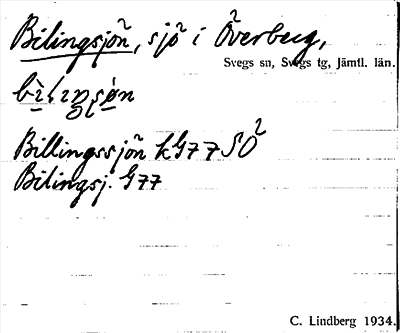 Bilingsjön, sjö i Överberg,
Svegs sn, Svegs tg, Jämtl. län.
Billingssjön kG77SÖ
Bilingsj. G77
C. Lindberg 1934.